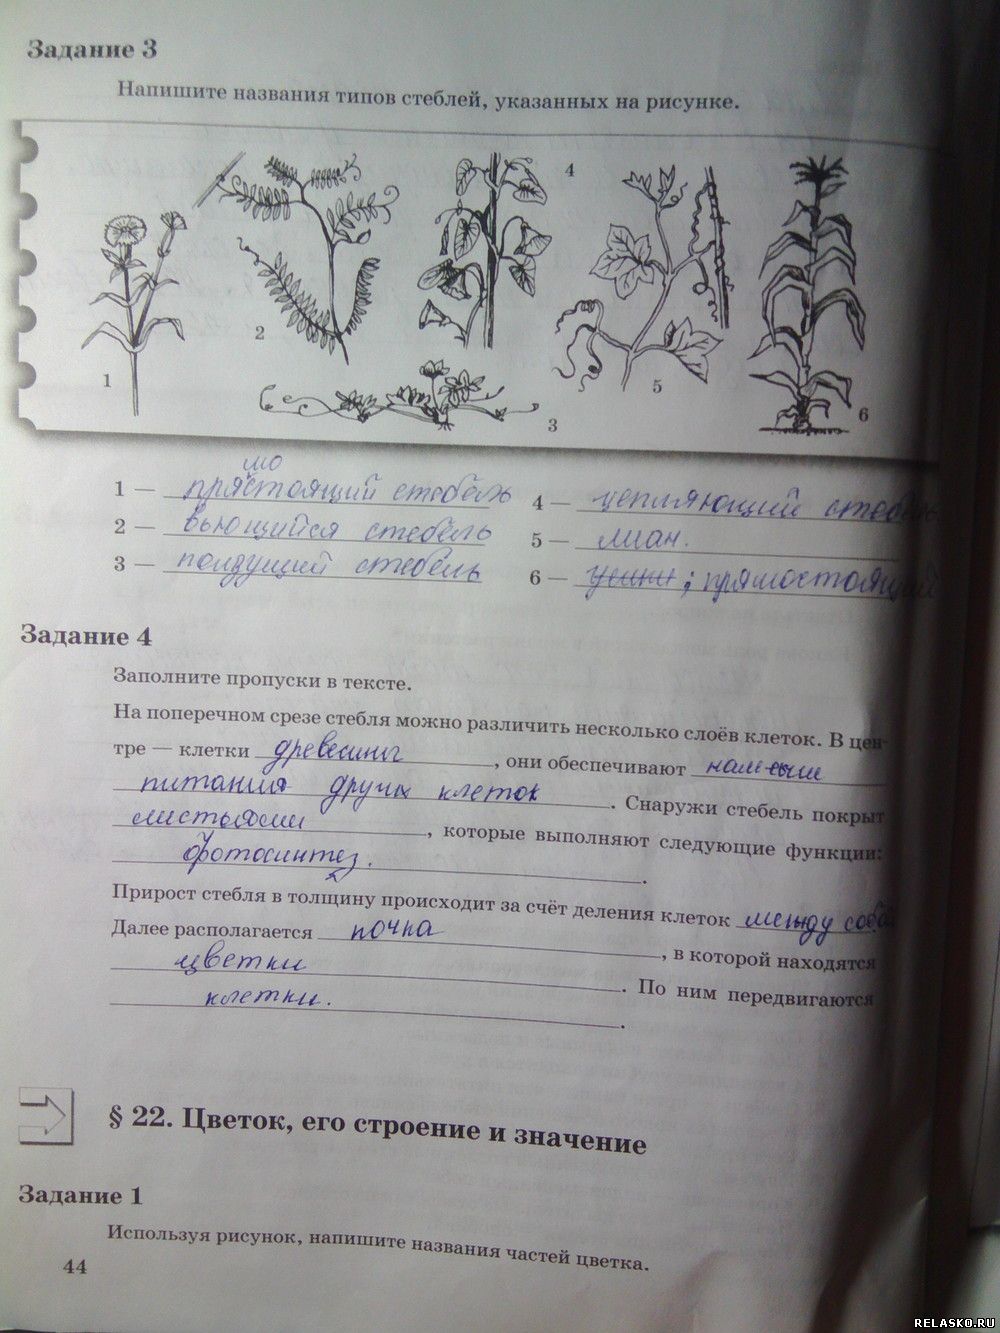 Задание 3
Напишите названия типов стеблей, указанных на рисунке.
1
2
3
4
5
6
мо
1 — прястоящий стебель
2 — вьющийся стебель
3 — ползущий стебель
4 — цепляющий стебель
5 — лиан.
6 — усики; прямостоящий
Задание 4
Заполните пропуски в тексте.
На поперечном срезе стебля можно различить несколько слоёв клеток. В цен-
тре — клетки древесины, они обеспечивают
питания других клеток. Снаружи стебель покрыт
листьями, которые выполняют следующие функции:
фотосинтез.
Прирост стебля в толщину происходит за счёт деления клеток между собой
Далее располагается почка, в которой находятся
цветки. По ним передвигаются
клетки.
§ 22. Цветок, его строение и значение
Задание 1
Используя рисунок, напишите названия частей цветка.
44
RELASKO.RU